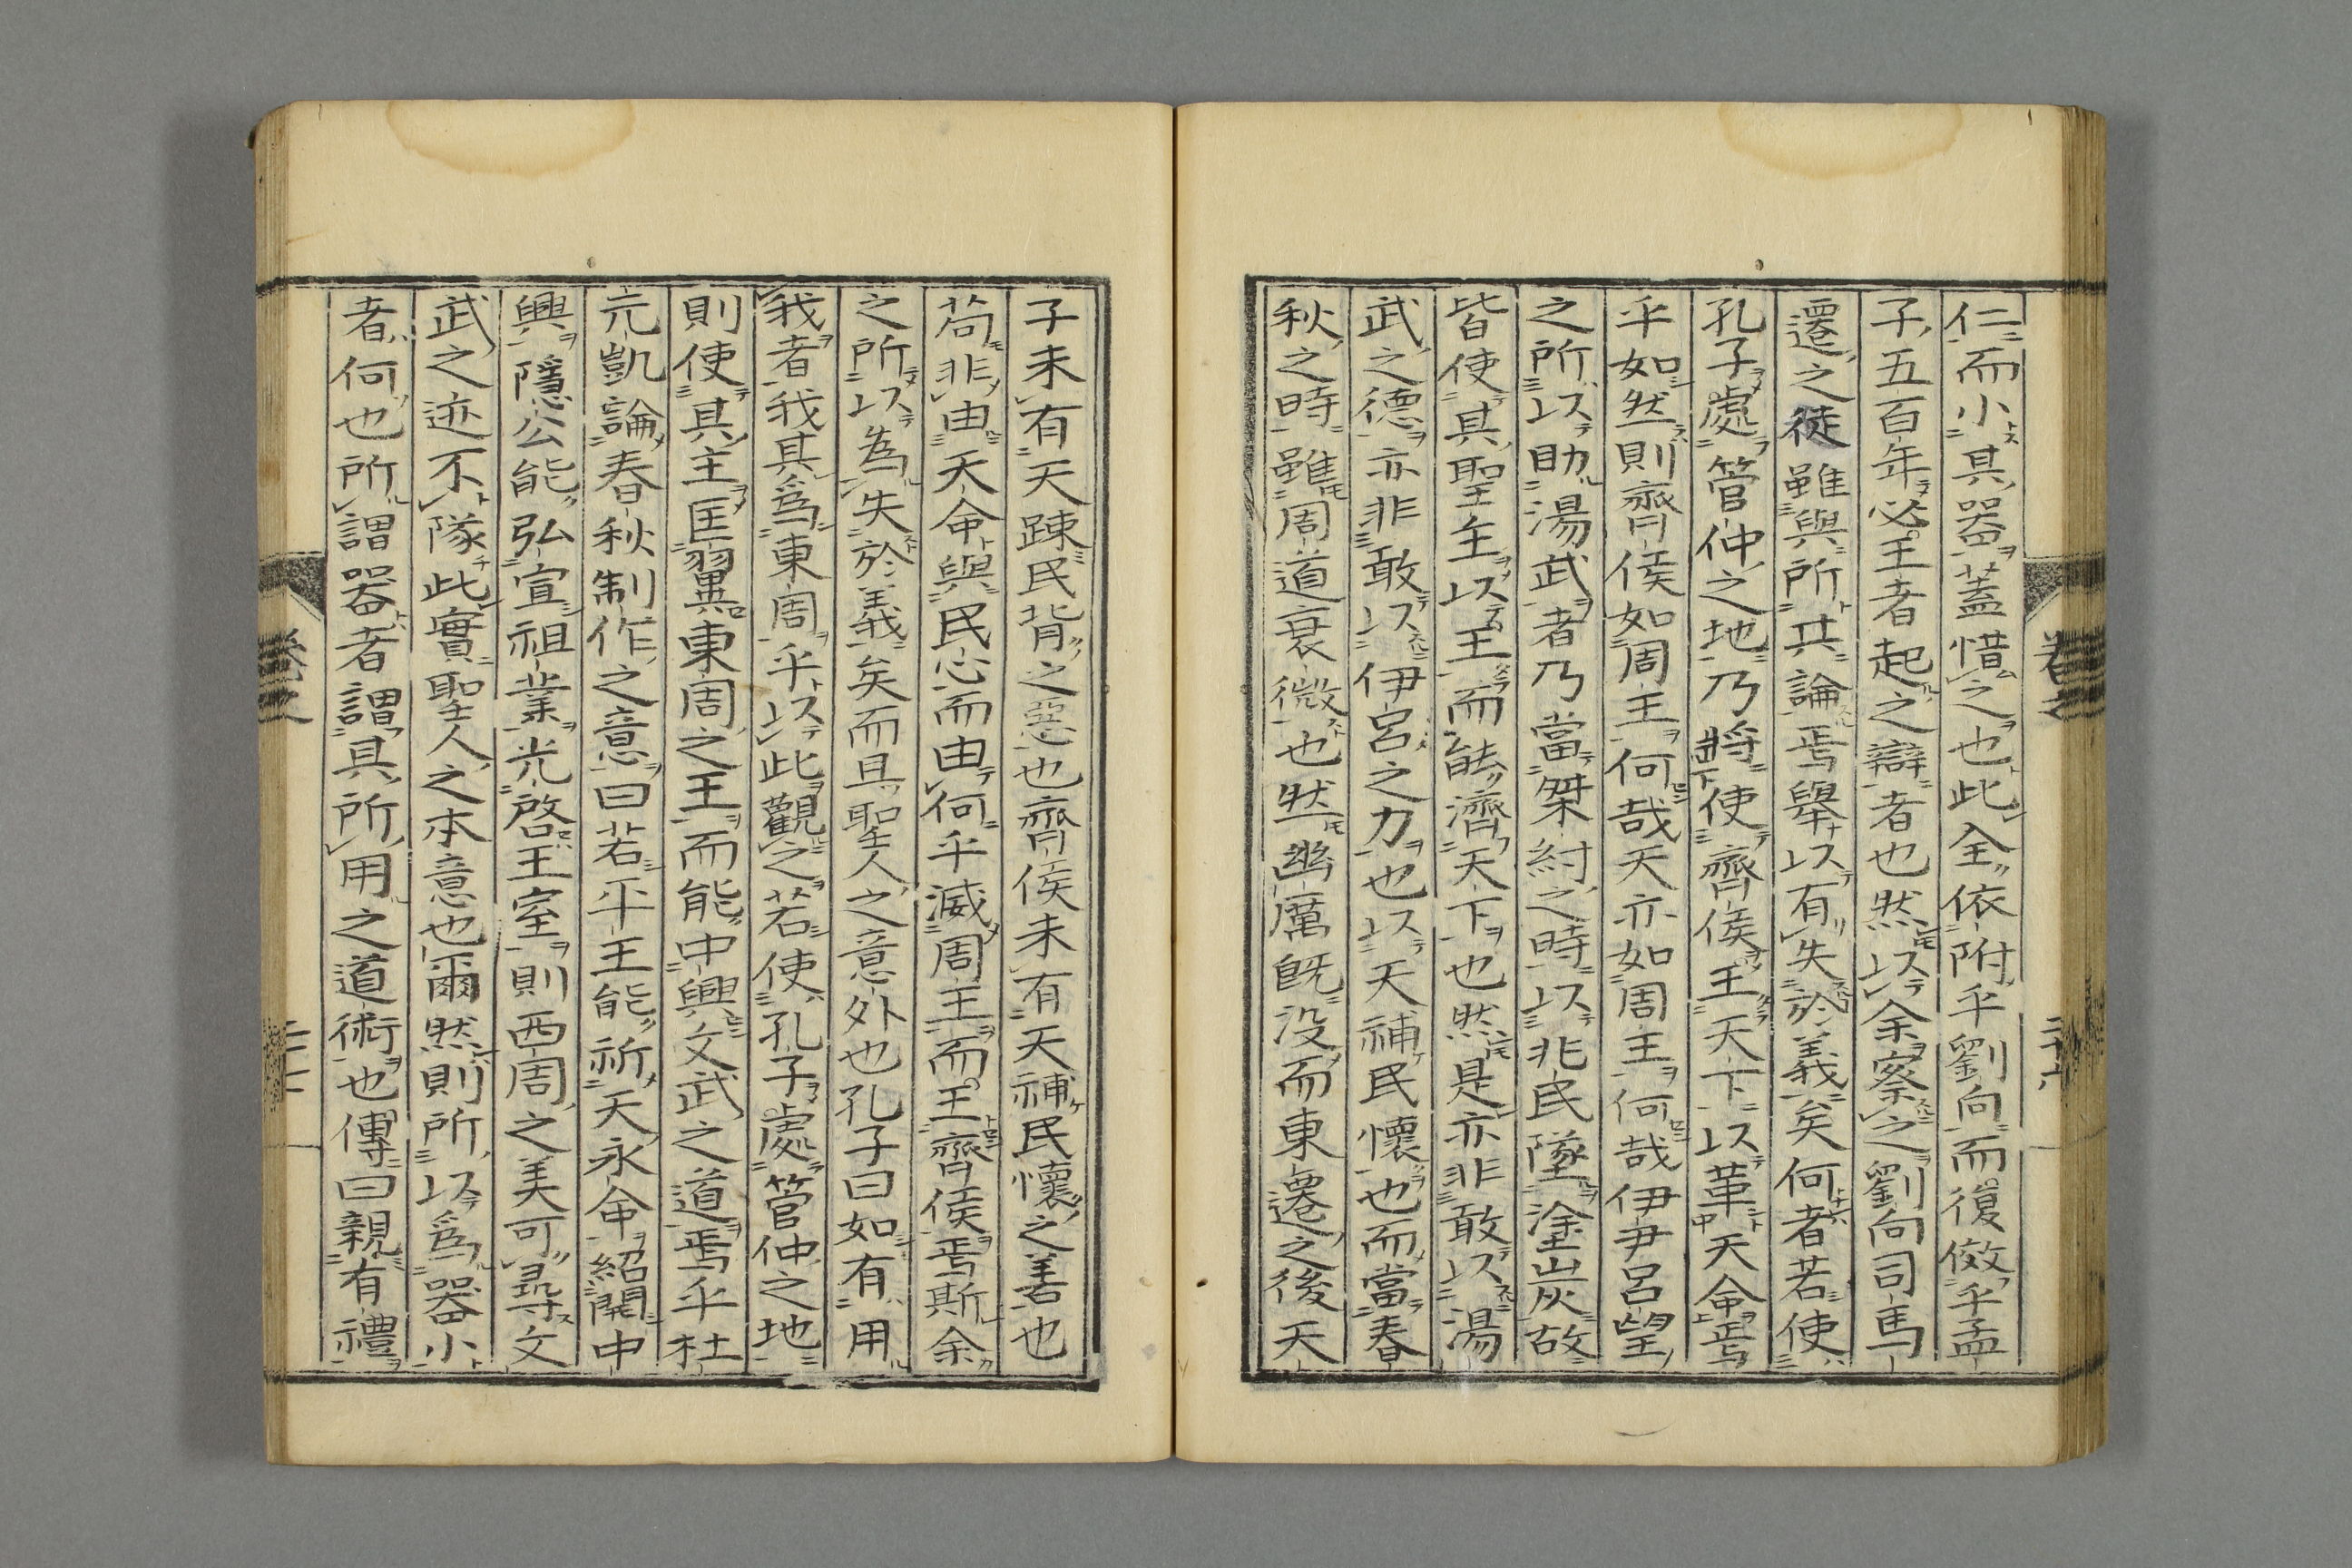 仁而小其器蓋惜之也此全依附乎劉向而復傚乎孟
子五百年必王者起之辯者也然以余察之劉向司馬
遷之徒雖與所其論焉舉以有失於義矣何者若使
孔子處管仲之地乃將使齊侯王天下以革天命焉
乎如然則齊侯如周王何哉天亦如周王何哉伊尹呂望
之所以助湯武者乃當桀紂之時以非民墜塗炭故
皆使其聖主以王而能濟天下也然是亦非敢以湯
武之德亦非敢以伊呂之力也以天補民懷也而當春
秋之時雖周道衰微也然幽厲既没而東遷之後天
子未有天踈民背之惡也齊侯未有天補民懷之善也
苟非由天命與民心而由何乎滅周王而王齊侯焉斯余
之所以為失於義矣而且聖人之意外也孔子曰如有用
我者我其爲東周乎以此觀之若使孔子處管仲之地
則使其主匡翼東周之王而能中興文武之道焉乎杜
元凱論春秋制作之意曰若平王能祈天永命紹開中
興隱公能弘宣祖業光啓王室則西周之美可尋文
武之迹不隊此實聖人之本意也爾然則所以爲器小
者何也所謂器者謂其所用之道術也傳曰親有禮